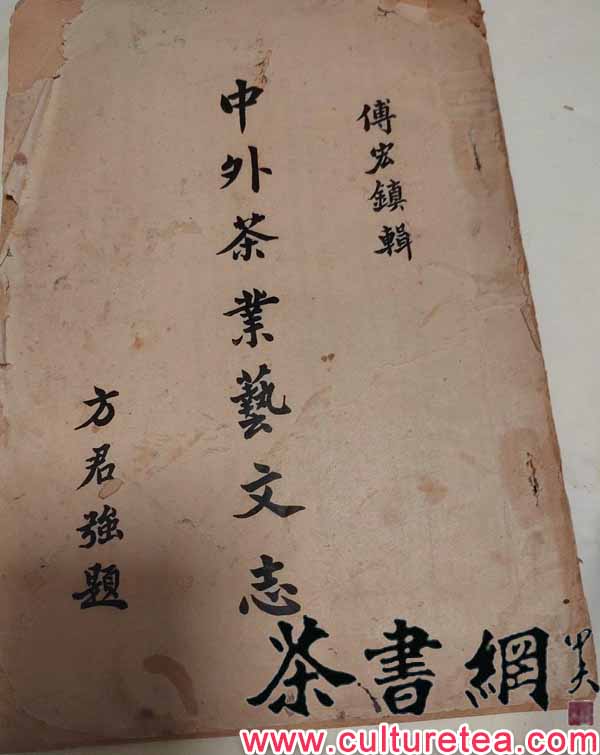 傅宏鎮輯
中外茶業藝文志
方君強題
茶書網
www.culturetea.com